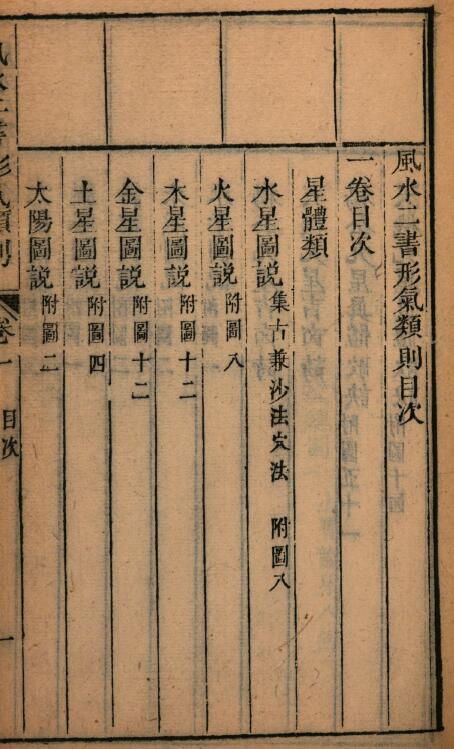 風水二書形氣類則目次
一卷目次
星體類
水星圖説 集古兼沙法穴法 附圖八
火星圖説 附圖八
木星圖説 附圖十二
金星圖説 附圖十二
土星圖説 附圖四
太陽圖説 附圖二
風水二書形氣類則 卷一 目次 一